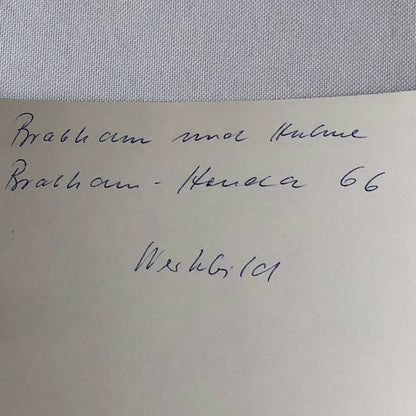 Brabham und Hulme
Brabham - Honda 66
Werkbild